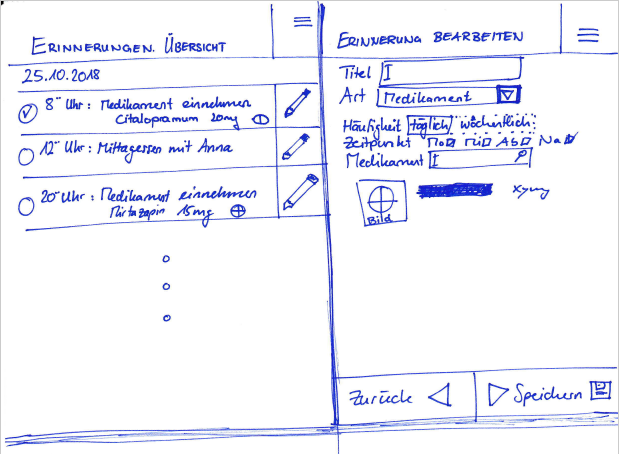 ERINNERUNGEN ÜBERSICHT
25.10.2018
8°° Uhr: Medikament einnehmen
Citalopramum 20mg
12°° Uhr: Mittagessen mit Anna
20°° Uhr: Medikament einnehmen
Mirtazapin 15mg
ERINNERUNG BEARBEITEN
Titel
Art Medikament
Häufigkeit täglich wöchentlich
Zeitpunkt Mo Mi Ab Na
Medikament
Bild xymg
Zurücke Speichern